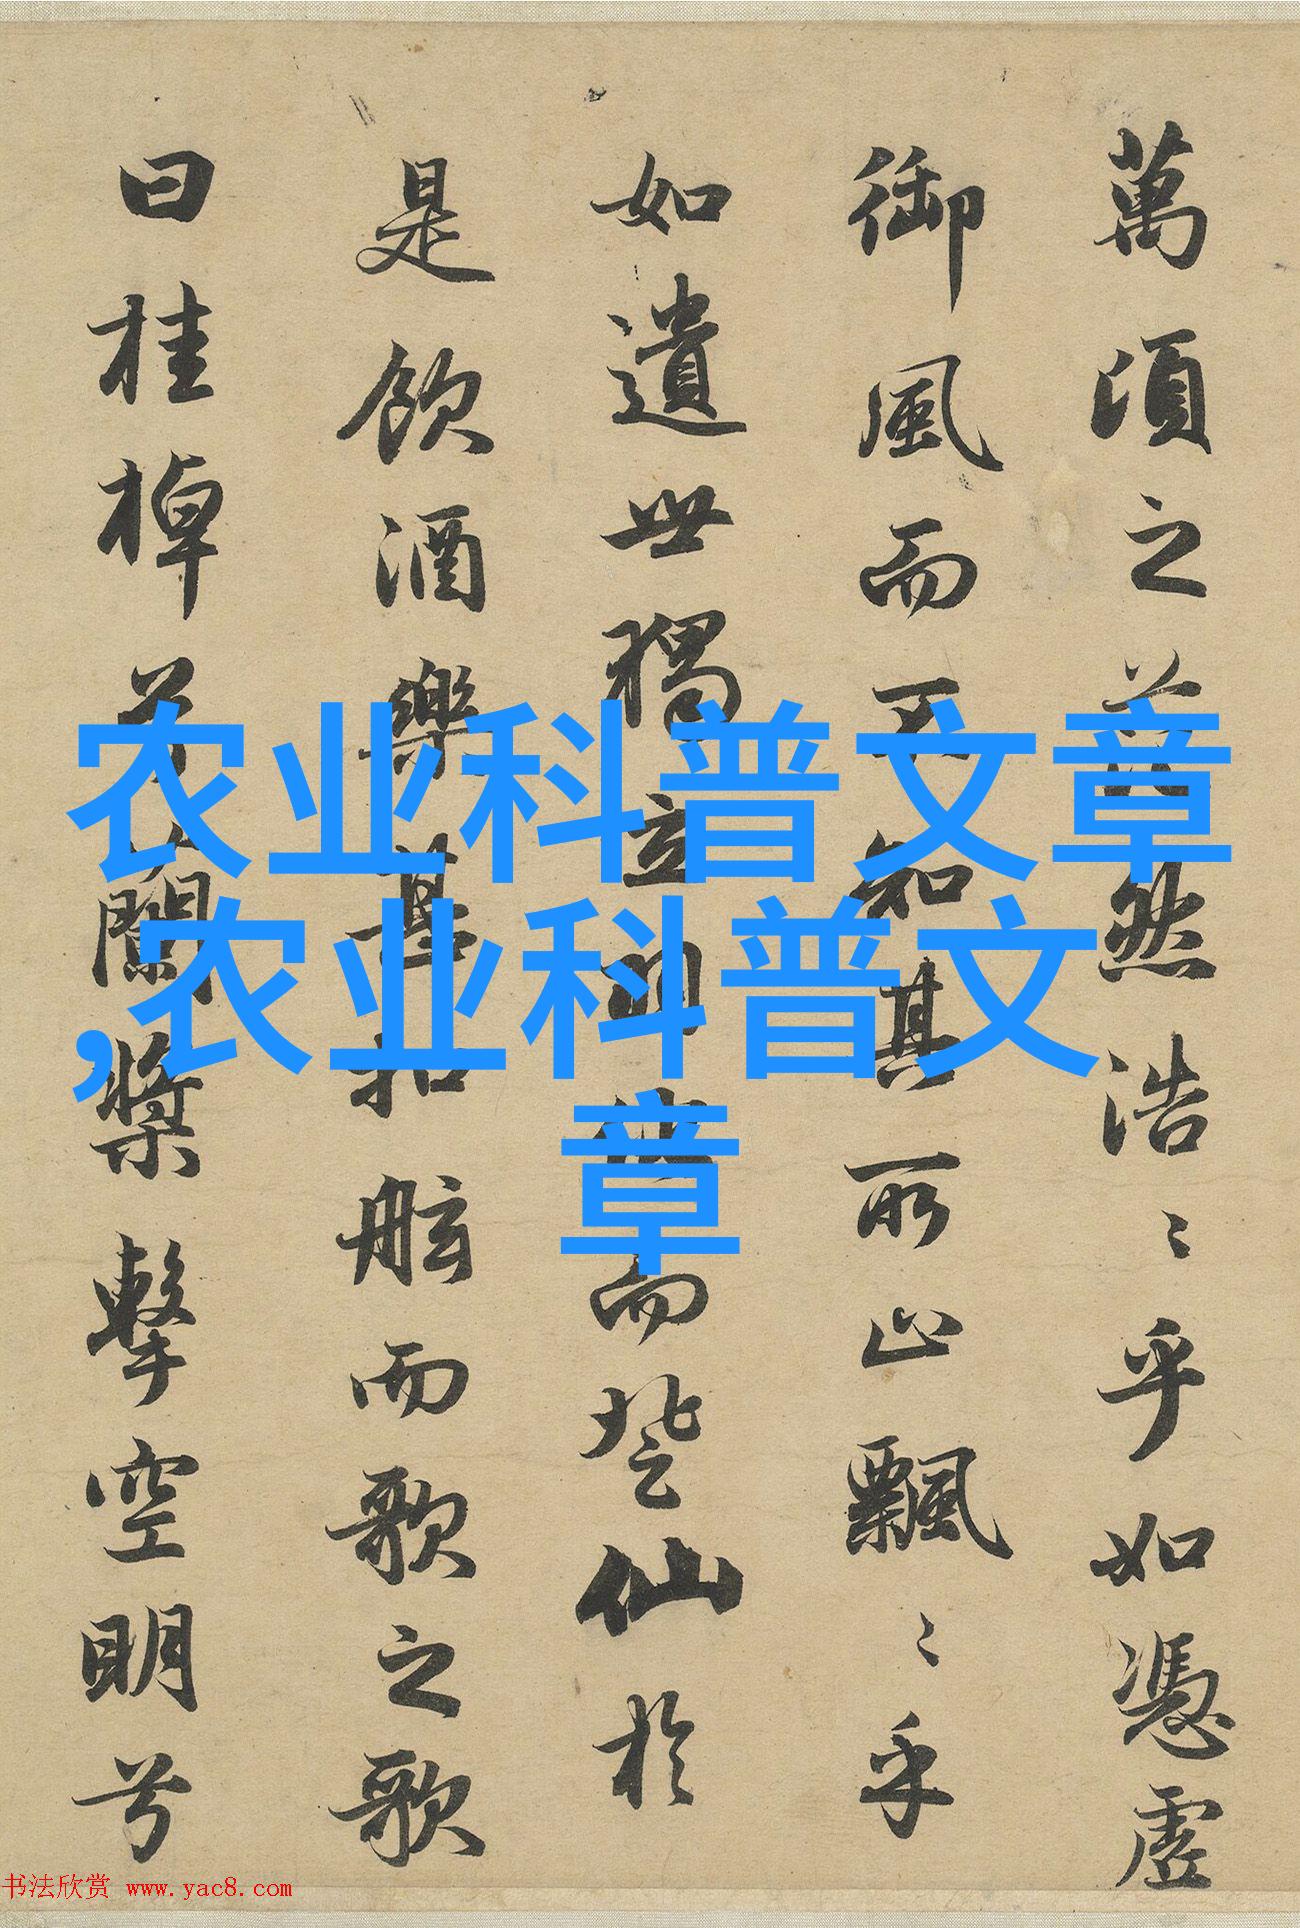 萬頃之茫然浩〻乎如憑虛
御風而不知其所止飄〻乎
如遺世獨立羽化而登仙於
是飲酒樂甚扣舷而歌之歌
曰桂棹兮蘭槳擊空明兮
农业科普文章
,农业科普文
章
书法欣赏 www.yac8.com